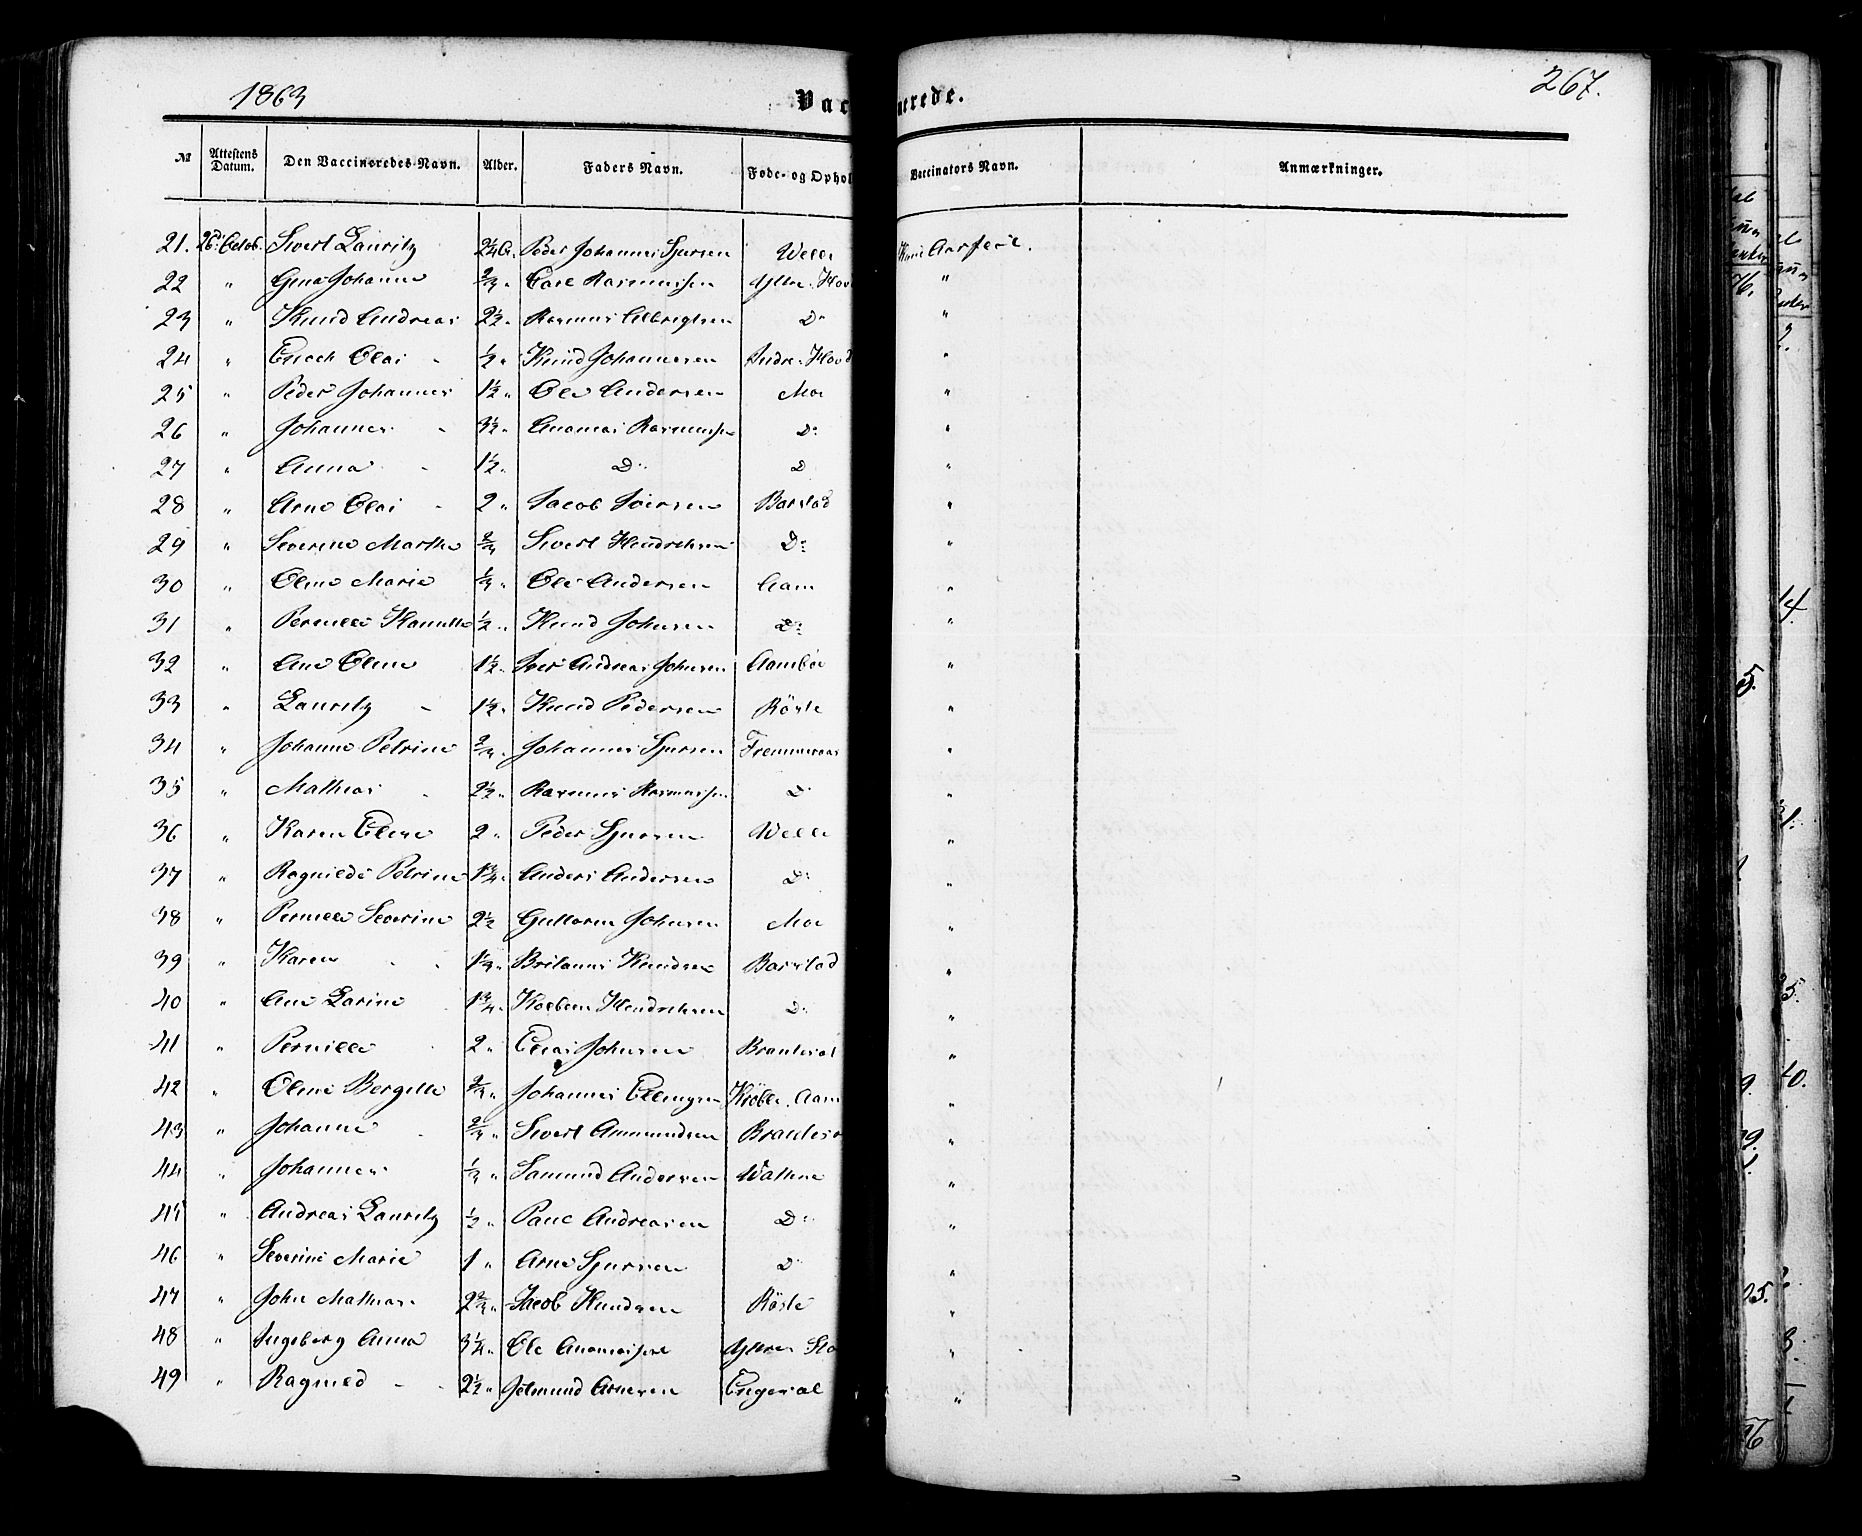 1863
Vac nerede.
267.
№ Attestens Datum. Den Vaccineredes Navn. Alder. Faders Navn. Føde- og Ophol Vaccinators Navn. Anmærkninger.
21. 26 Octob. Sivert Lauritz 2¼ Peder Johannes Sjursen Welle Aarseth.
22 " Gina Johanne ⅔ " Carl Rasmussen Yttre Hovd "
23 " Knud Andreas 2½ " Rasmus Albregtsen Do "
24 " Enoch Olai ½ " Knud Johannesen Indre Hovd "
25 " Peder Johannes 1½ " Ole Andersen Moe "
26 " Johannes 3½ " Ananias Rasmussen Do "
27 " Anna 1½ " Do D "
28 " Arne Olai 2 " Jacob Iversen Barstad "
29 " Severine Marthe ⅔ Sivert Hendriksen Do "
30 " Oline Marie ⅓ " Ole Andersen Aam "
31 " Pernille Kamilla ½ " Knud Johnsen Do "
32 " Ane Oline 1½ " Iver Andreas Johnsen Aambøe "
33 " Lauritz 1½ " Knud Pedersen Röste "
34 " Johanne Petrine ⅔ " Johannes Sjursen Fremmeraas "
35 " Mathias 2½ " Rasmus Rasmussen D "
36 " Karen Eline 2 " Peder Sjursen Welle "
37 " Ragnilde Petrine 1¾ " Anders Andersen D "
38 " Pernille Severine 2½ Guttorm Johnsen Moe "
39 " Karen 1⅓ " Britanus Knudsen Barstad "
40 " Ane Larine 1¾ " Kolbeen Hendriksen D "
41 " Pernille 2 " Elias Johnsen "
42 " Oline Bergitte ⅔ " Johannes Aam "
43 " Johanne ⅔ " Sivert Ammundsen "
44 " Johannes ⅓ " Samund Andersen Watne "
45 " Andreas Lauritz ½ " Paul Andreasen D "
46 " Severine Marie 1 " Arne Sjursen D "
47 " John Mathias 2⅔ " Jacob Knudsen Röste "
48 " Ingeborg Anna 3¼ " Ole Ananiassen Yttre "
49 " Ragnild 2½ " Jetmund Arnesen Engeset "